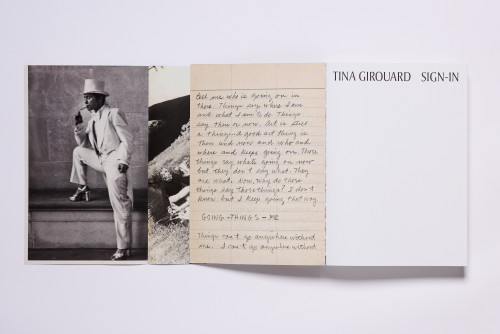 tell me who is going on in
there. Things say where I am
and what I am to do. Things
say then or now. Art is such
a thing and good art thing is
then and now and who and
where and keeps going on. Those
things say whats going on now
but they don't say what. They
are what. How, way do those
things say those things? I don't
know but I keep going that way.
GOING – THINGS – ME
Things can't go anywhere without
me. I can't go anywhere without
TINA GIROUARD SIGN-IN